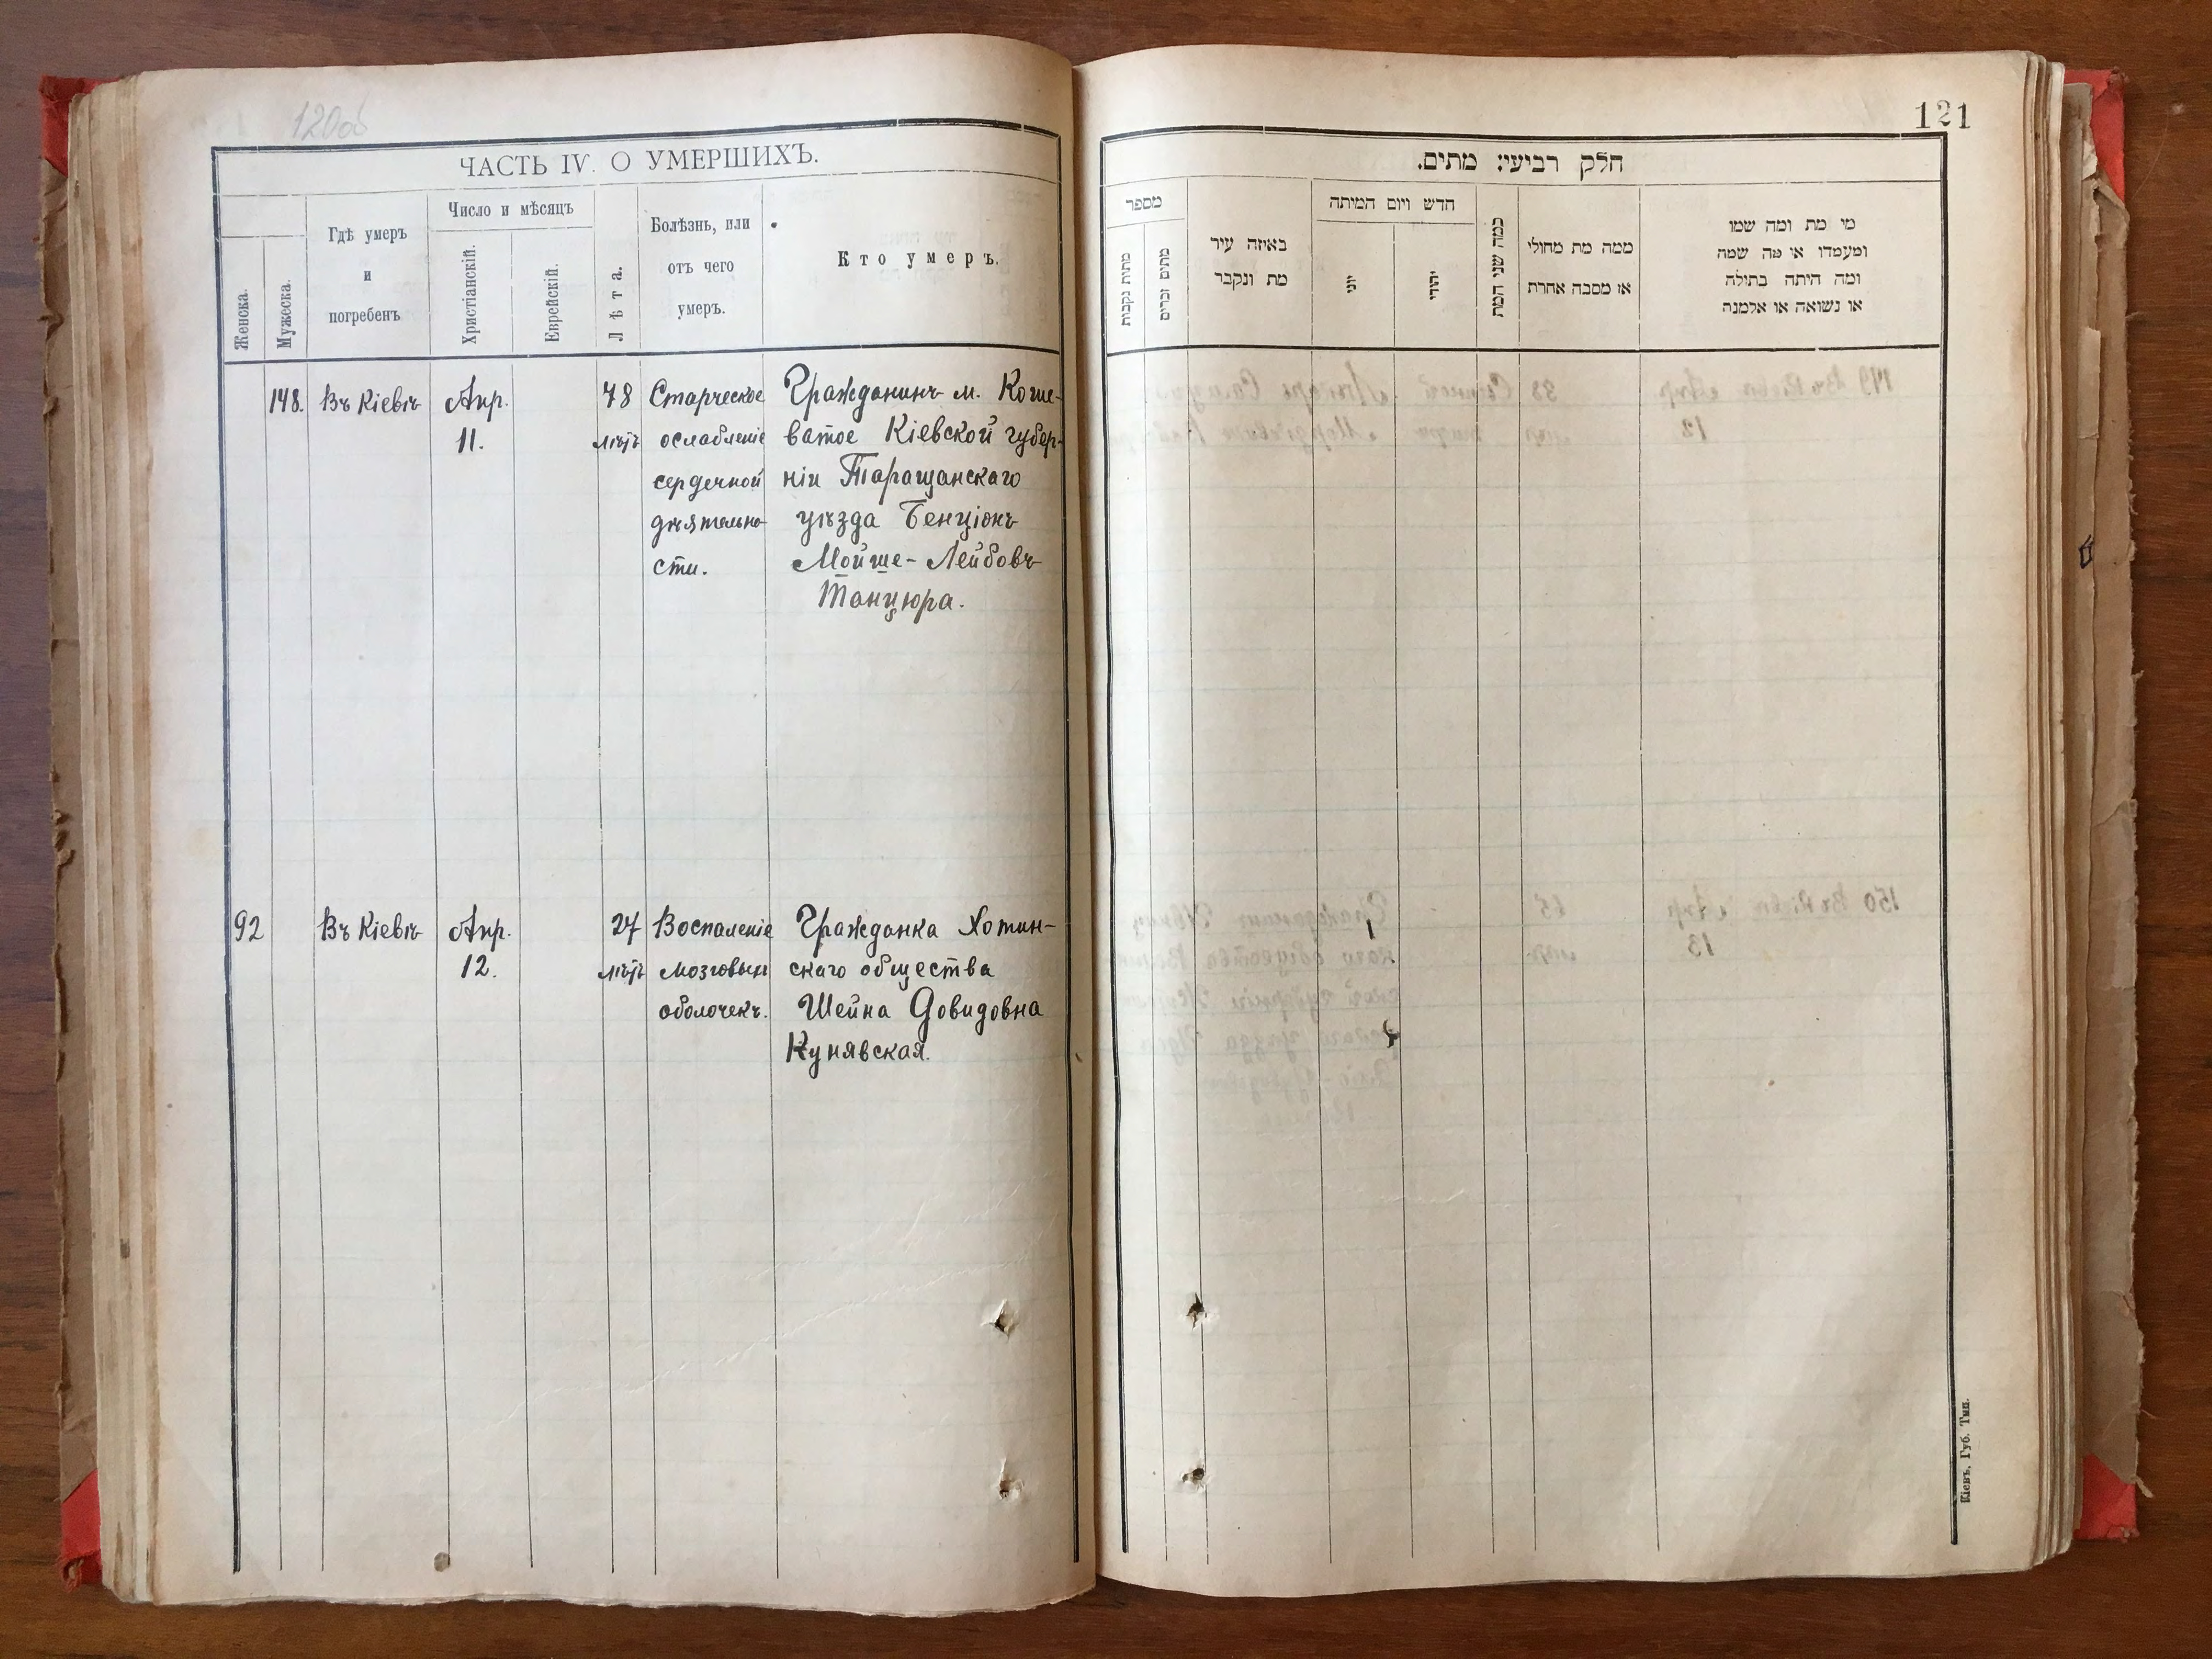 120об
ЧАСТЬ IV. О УМЕРШИХЪ.
Женска.
Мужеска.
Гдѣ умеръ
и
погребенъ
Число и мѣсяцъ
Христіанскій.
Еврейскій.
Лѣта.
Болѣзнь, или
отъ чего
умеръ.
Кто умеръ.
148. Въ Кіевѣ Апр. 78 Старческое Гражданинъ м. Коше-
11. лѣтъ ослабленіе ватое Кіевской губер-
сердечной ніи Таращанскаго
дѣятельно- уѣзда Бенціонъ
сти. Мойше-Лейбовъ
Танцюра.
92 Въ Кіевѣ Апр. 27 Воспаленіе Гражданка Хотин-
12. лѣтъ мозговых скаго общества
оболочекъ. Шейна Довидовна
Кунявская.
121
חלק רביעי: מתים.
מספר
מתות נקבות
מתים זכרים
באיזה עיר
מת ונקבר
חדש ויום המיתה
יוני
יהודי
כמה שני המת
ממה מת מחולי
או מסבה אחרת
מי מת ומה שמו
ומעמדו או מה שמה
ומה היתה בתולה
או נשואה או אלמנה
Кіевъ, Губ. Тип.